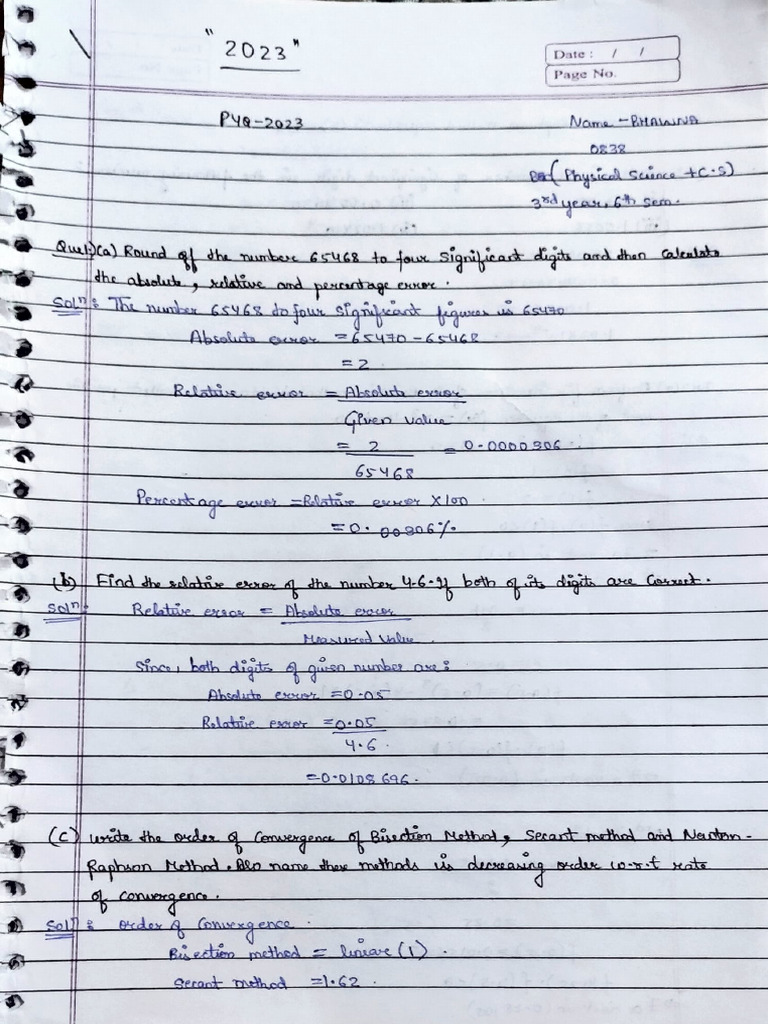 "2023"
Date : / /
Page No.
PYQ-2023
Name - BHAWNA
0838
(Physical Science + C.S)
3rd year, 6th sem.
Que1)(a) Round off the number 65468 to four significant digits and then calculate
the absolute, relative and percentage error.
Solⁿ: The number 65468 to four significant figures is 65470
Absolute error = 65470-65468
= 2
Relative error = Absolute error
Given value
= 2 = 0.0000306
65468
Percentage error = Relative error X100
= 0.00306%
(b) Find the relative error of the number 4.6. If both of its digits are correct.
Solⁿ: Relative error = Absolute error
Measured value
Since, both digits of given number are:
Absolute error = 0.05
Relative error = 0.05
4.6
= 0.0108696.
(c) Write the order of Convergence of Bisection Method, Secant method and Newton-
Raphson Method. Also name these methods is decreasing order w.r.t rate
of convergence.
Solⁿ: Order of Convergence
Bisection method = linear (1).
Secant method = 1.62.